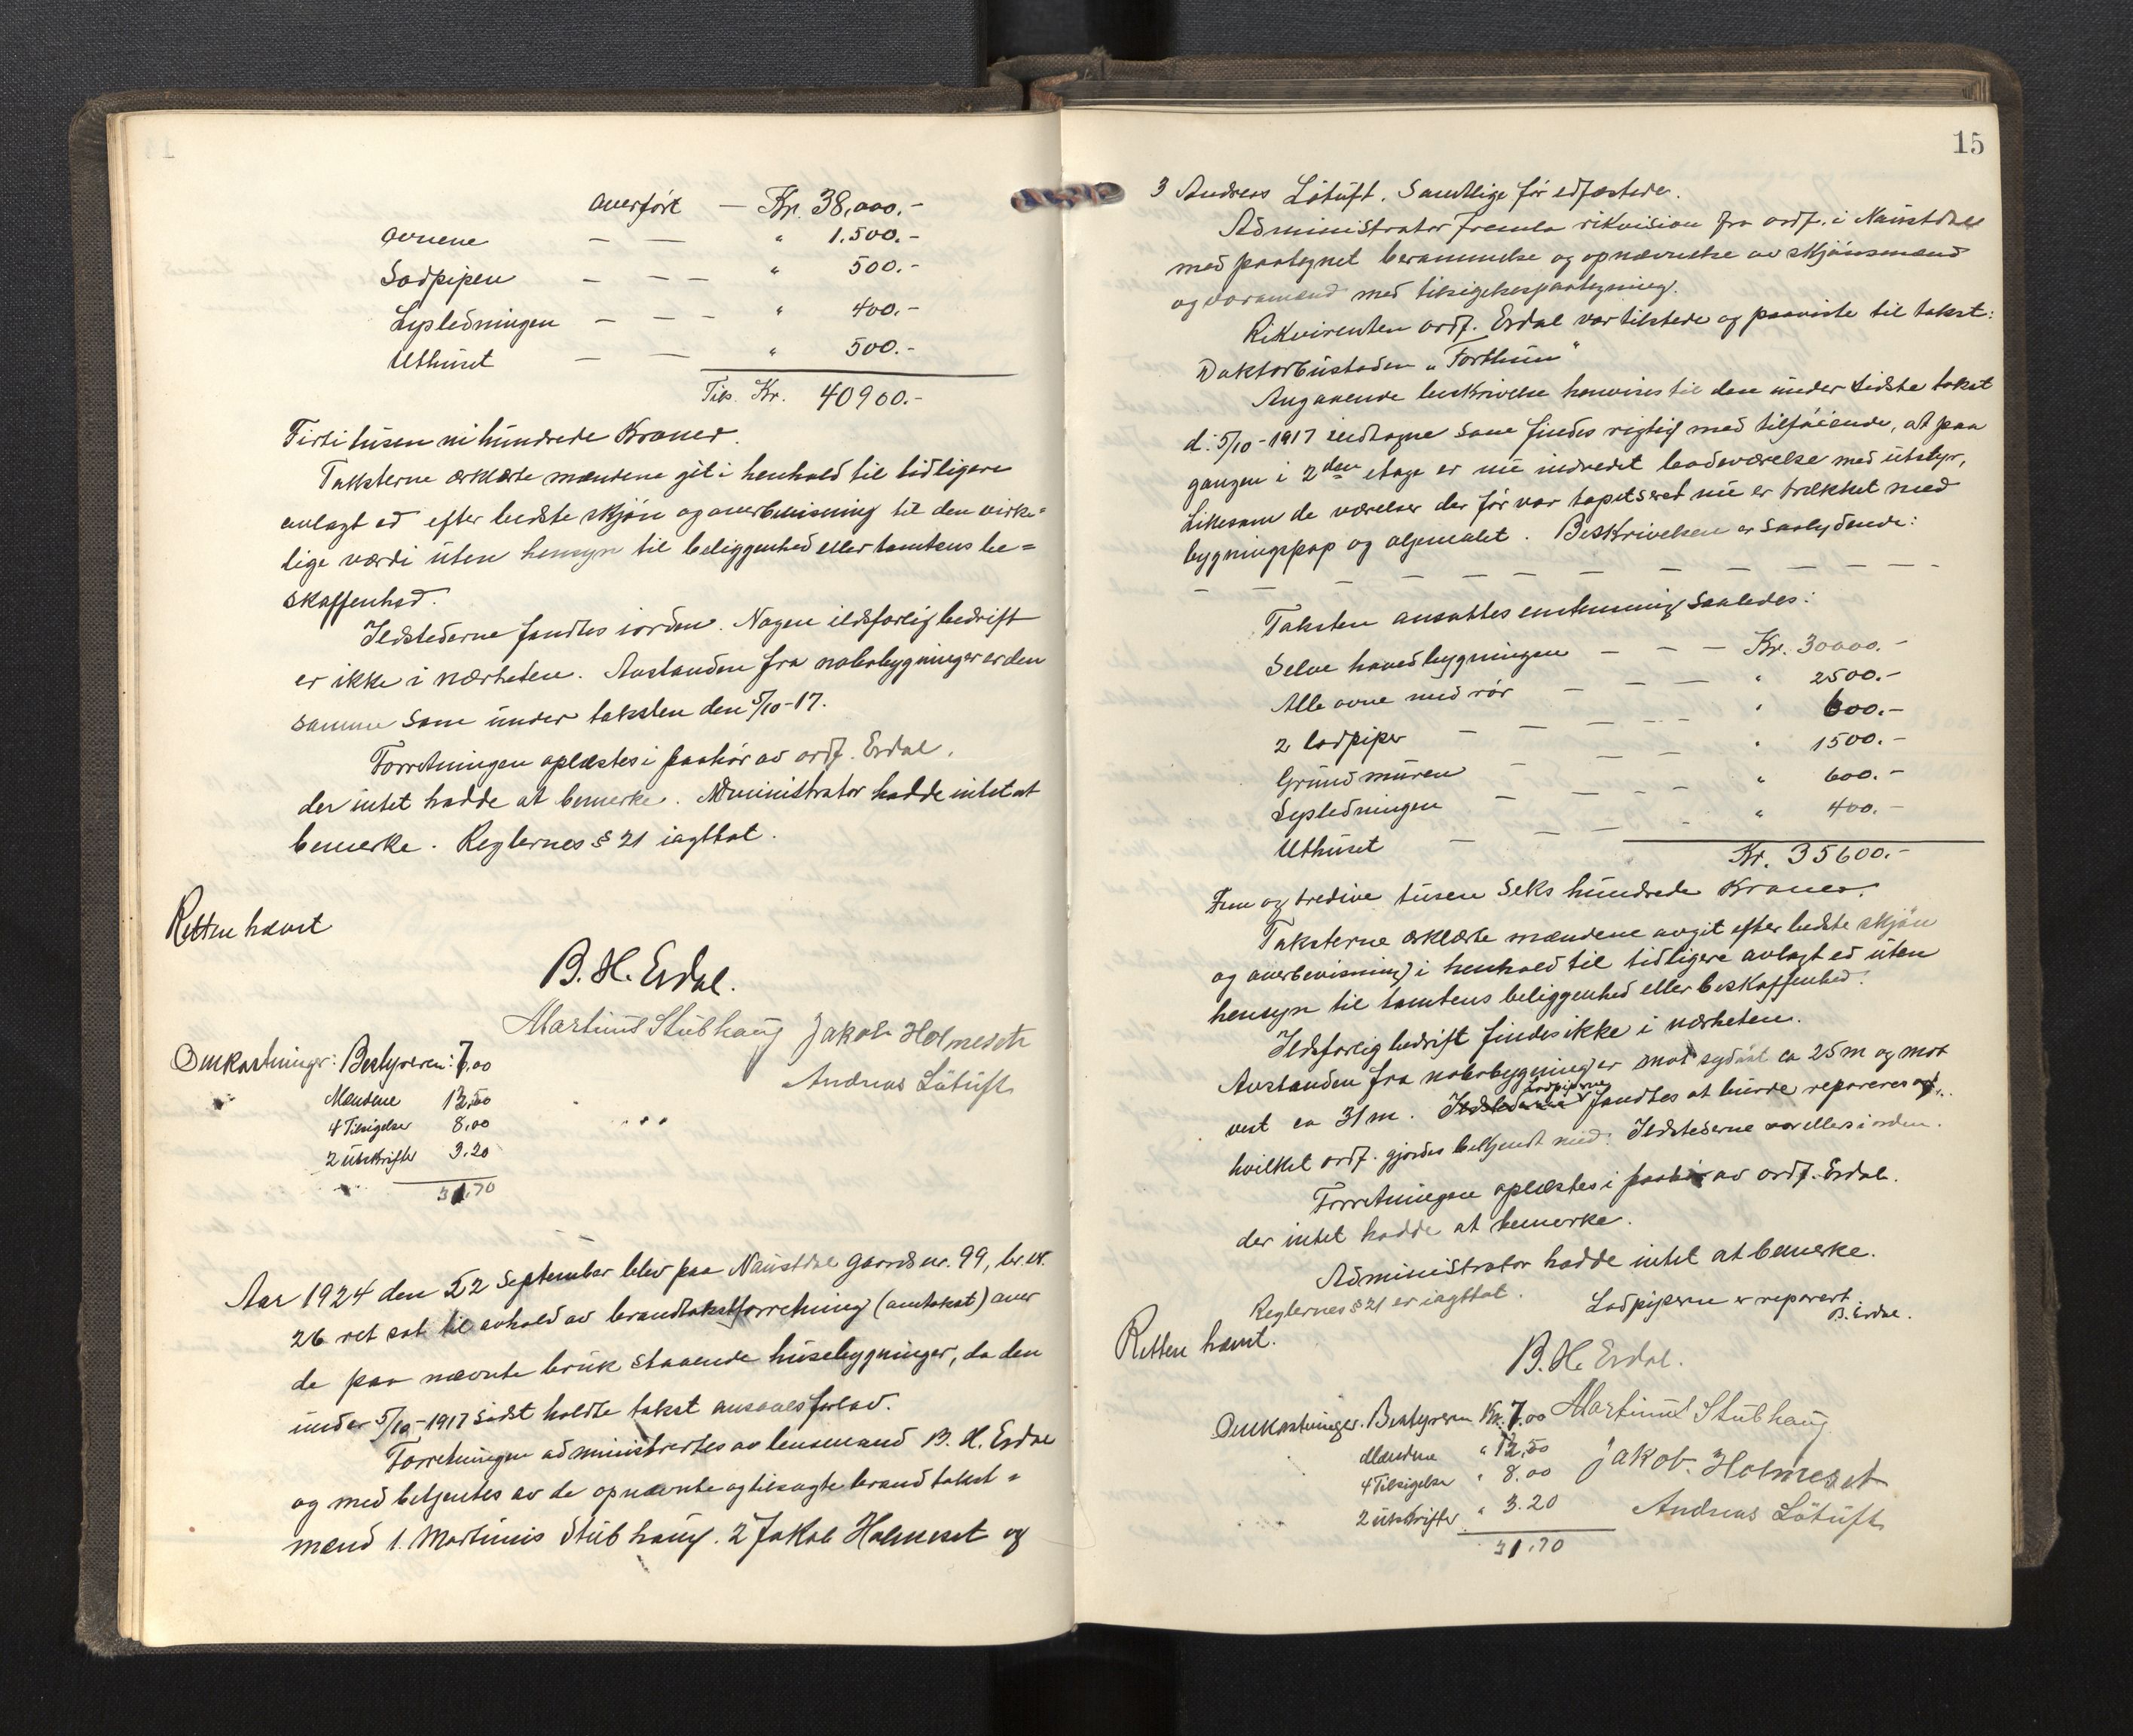 overført — Kr. 38,000.-
ovnene — — " 1.500.-
Sodpipen — — — " 500.-
Lysledningen — — — " 400.-
Uthuset — — " 500.-
Tils. Kr. 40900.-
Firti tusen ni hundrede Kroner.
Taksterne erklærte mændene git i henhold til tidligere
avlagt ed efter bedste skjøn og overbevisning til den virke=
lige værdi uten hensyn til beliggenhed eller tomtens be=
skaffenhed.
Ildstederne fandtes iorden. Nogen ildsfarlig bedrift
er ikke i nærheten. Avstanden fra nabobygninger er den
samme som under taksten den 5/10-17.
Forretningen oplæstes i paahør av ordf. Erdal.
der intet hadde at bemerke. Administrator hadde intet at
bemerke. Reglernes § 21 iagttat.
Retten hævet
B. H. Erdal.
Martinus Stubhaug Jakob Holmeset
Andreas Løtuft
Omkostninger: Bestyreren: 7.00
Mændene 13,50
4 Tilsigelser 8,00
2 utskrifter 3.20
31.70
Aar 1924 den 22 September blev paa Naustdal gaards nr. 99, br.nr.
26 ret sat til avhold av brandtakstforretning (omtakst) over
de paa nævnte bruk staaende husebygninger, da den
under 5/10-1917 sidst holdte takst ansaaes for lav.
Forretningen administrertes av lensmand B. H. Erdal
og med betjentes av de opnævnte og tilsagte brandtakst=
mænd 1. Martinus Stubhaug. 2 Jakob Holmeset og
15
3 Andreas Løtuft. Samtlige før edfæstede.
Administrator fremla rikvision fra ordf. i Naustdal
med paategnet berammelse og opnævnelse av skjønsmænd
og varamænd med tilsigelsespaategning.
Rikvirenten ordf. Erdal var tilstede og paaviste til takst:
Doktorbustaden „Forthun"
Angaaende beskrivelse henvises til den under sidste takst
d. 5/10-1917 indtagne som findes rigtig med tilføiende, at paa
gangen i 2den etage er nu indredet badeværelse med utstyr,
Likesom de værelser der før var tapetseret nu er trækket med
bygningspap og oljemalet. Beskrivelsen er saalydende:
— — — — — — — — — — — —
Taksten ansattes enstemmig saaledes:
Selve hovedbygningen — — — Kr. 30000.-
Alle ovne med rør — — — " 2500.-
2 sodpiper — — — — " 600.-
Grundmuren — — — " 1500.-
Lysledningen — — — — " 600.-
Uthuset — — — — " 400.-
Kr. 35600.-
Fem og tredive tusen seks hundrede Kroner.
Taksterne erklærte mændene avgit efter bedste skjøn
og overbevisning i henhold til tidligere avlagt ed uten
hensyn til tomtens beliggenhed eller beskaffenhed.
Ildsfarlig bedrift findes ikke i nærheten.
Avstanden fra nabobygning er mot sydøst ca 25 m og mot
vest ca 31 m. Ildstederne Sodpiperne fandtes at burde repareres
hvilket ordf. gjordes bekjendt med. Ildstederne var ellers i orden.
Forretningen oplæstes i paahør av ordf. Erdal.
der intet hadde at bemerke.
Administrator hadde intet at bemerke.
Reglernes § 21 er iagttat. Sodpiperne er reparert
B. Erdal.
Retten hævet.
B. H. Erdal.
Omkostninger. Bestyreren Kr. 7.00 Martinus Stubhaug
Mændene " 13,50
4 Tilsigelser " 8.00 Jakob Holmeset
2 utskrifter " 3.20 Andreas Løtuft
31.70